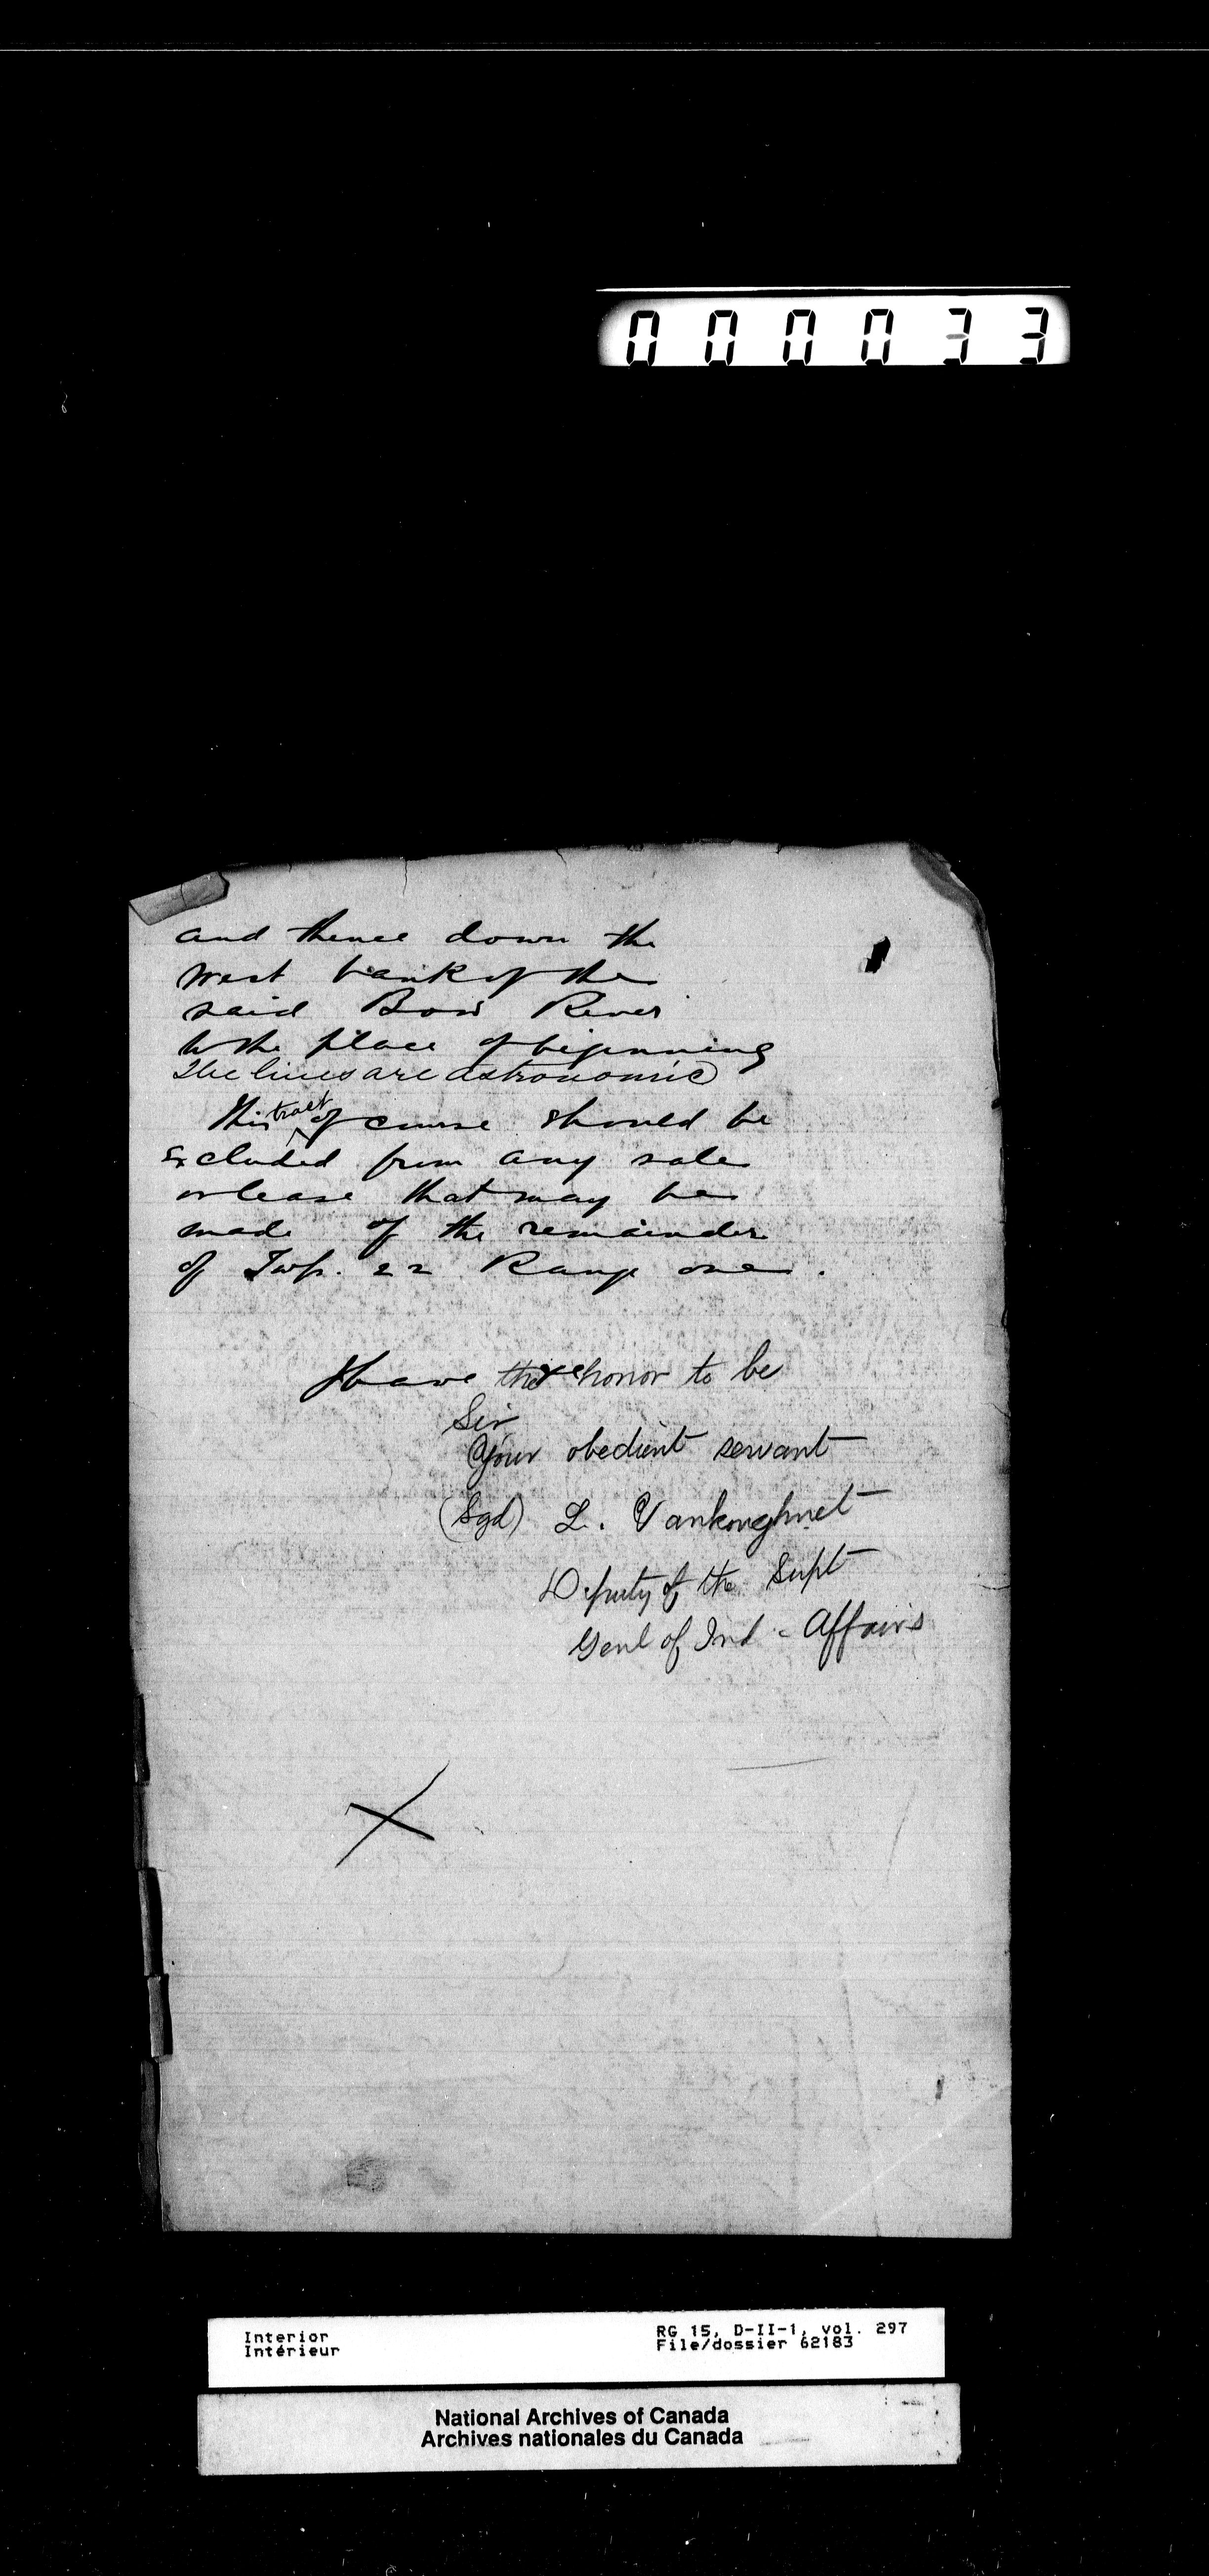 000033
and thence down the
west bank of the
said Bow River
to the place of beginning
The lines are astronomic
This tract of course should be
excluded from any sale
or lease that may be
made of the remainder
of Twp. 22 Range one.
I have the honor to be
Sir
Your obedient servant
(Sgd) L. Vankoughnet
Deputy of the Supt
Genl of Ind - Affairs
Interior
Intérieur
RG 15, D-II-1, vol. 297
File/dossier 62183
National Archives of Canada
Archives nationales du Canada